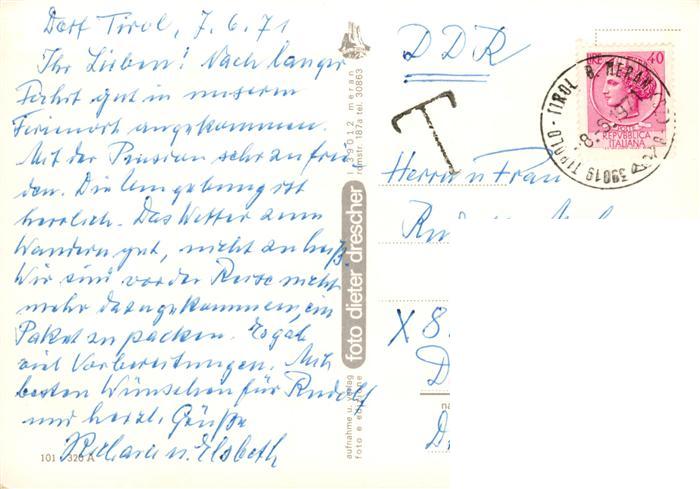 Dorf Tirol, 7.6.71
Ihr Lieben! Nach langer
Fahrt gut in unserem
Ferienort angekommen.
Mit der Pension sehr zufrie
den. Die Umgebung ist
herrlich. Das Wetter zum
Wandern gut, nicht zu heiß.
Wir sind vor der Reise nicht
mehr dazugekommen, ein
Paket zu packen. Es gab
viel Vorbereitungen. Mit
besten Wünschen für Rudolf
und herzl. Grüße
u. Elsbeth
101 - 326 A
foto dieter drescher
I 39012 meran
romstr. 187a tel. 30863
aufnahme u. verlag
foto e edizione
DDR
T
LIRE 40
REPVBBLICA
ITALIANA
39019 TIROLO - TIROL B. MERAN
Herrn u Frau
X 8
D